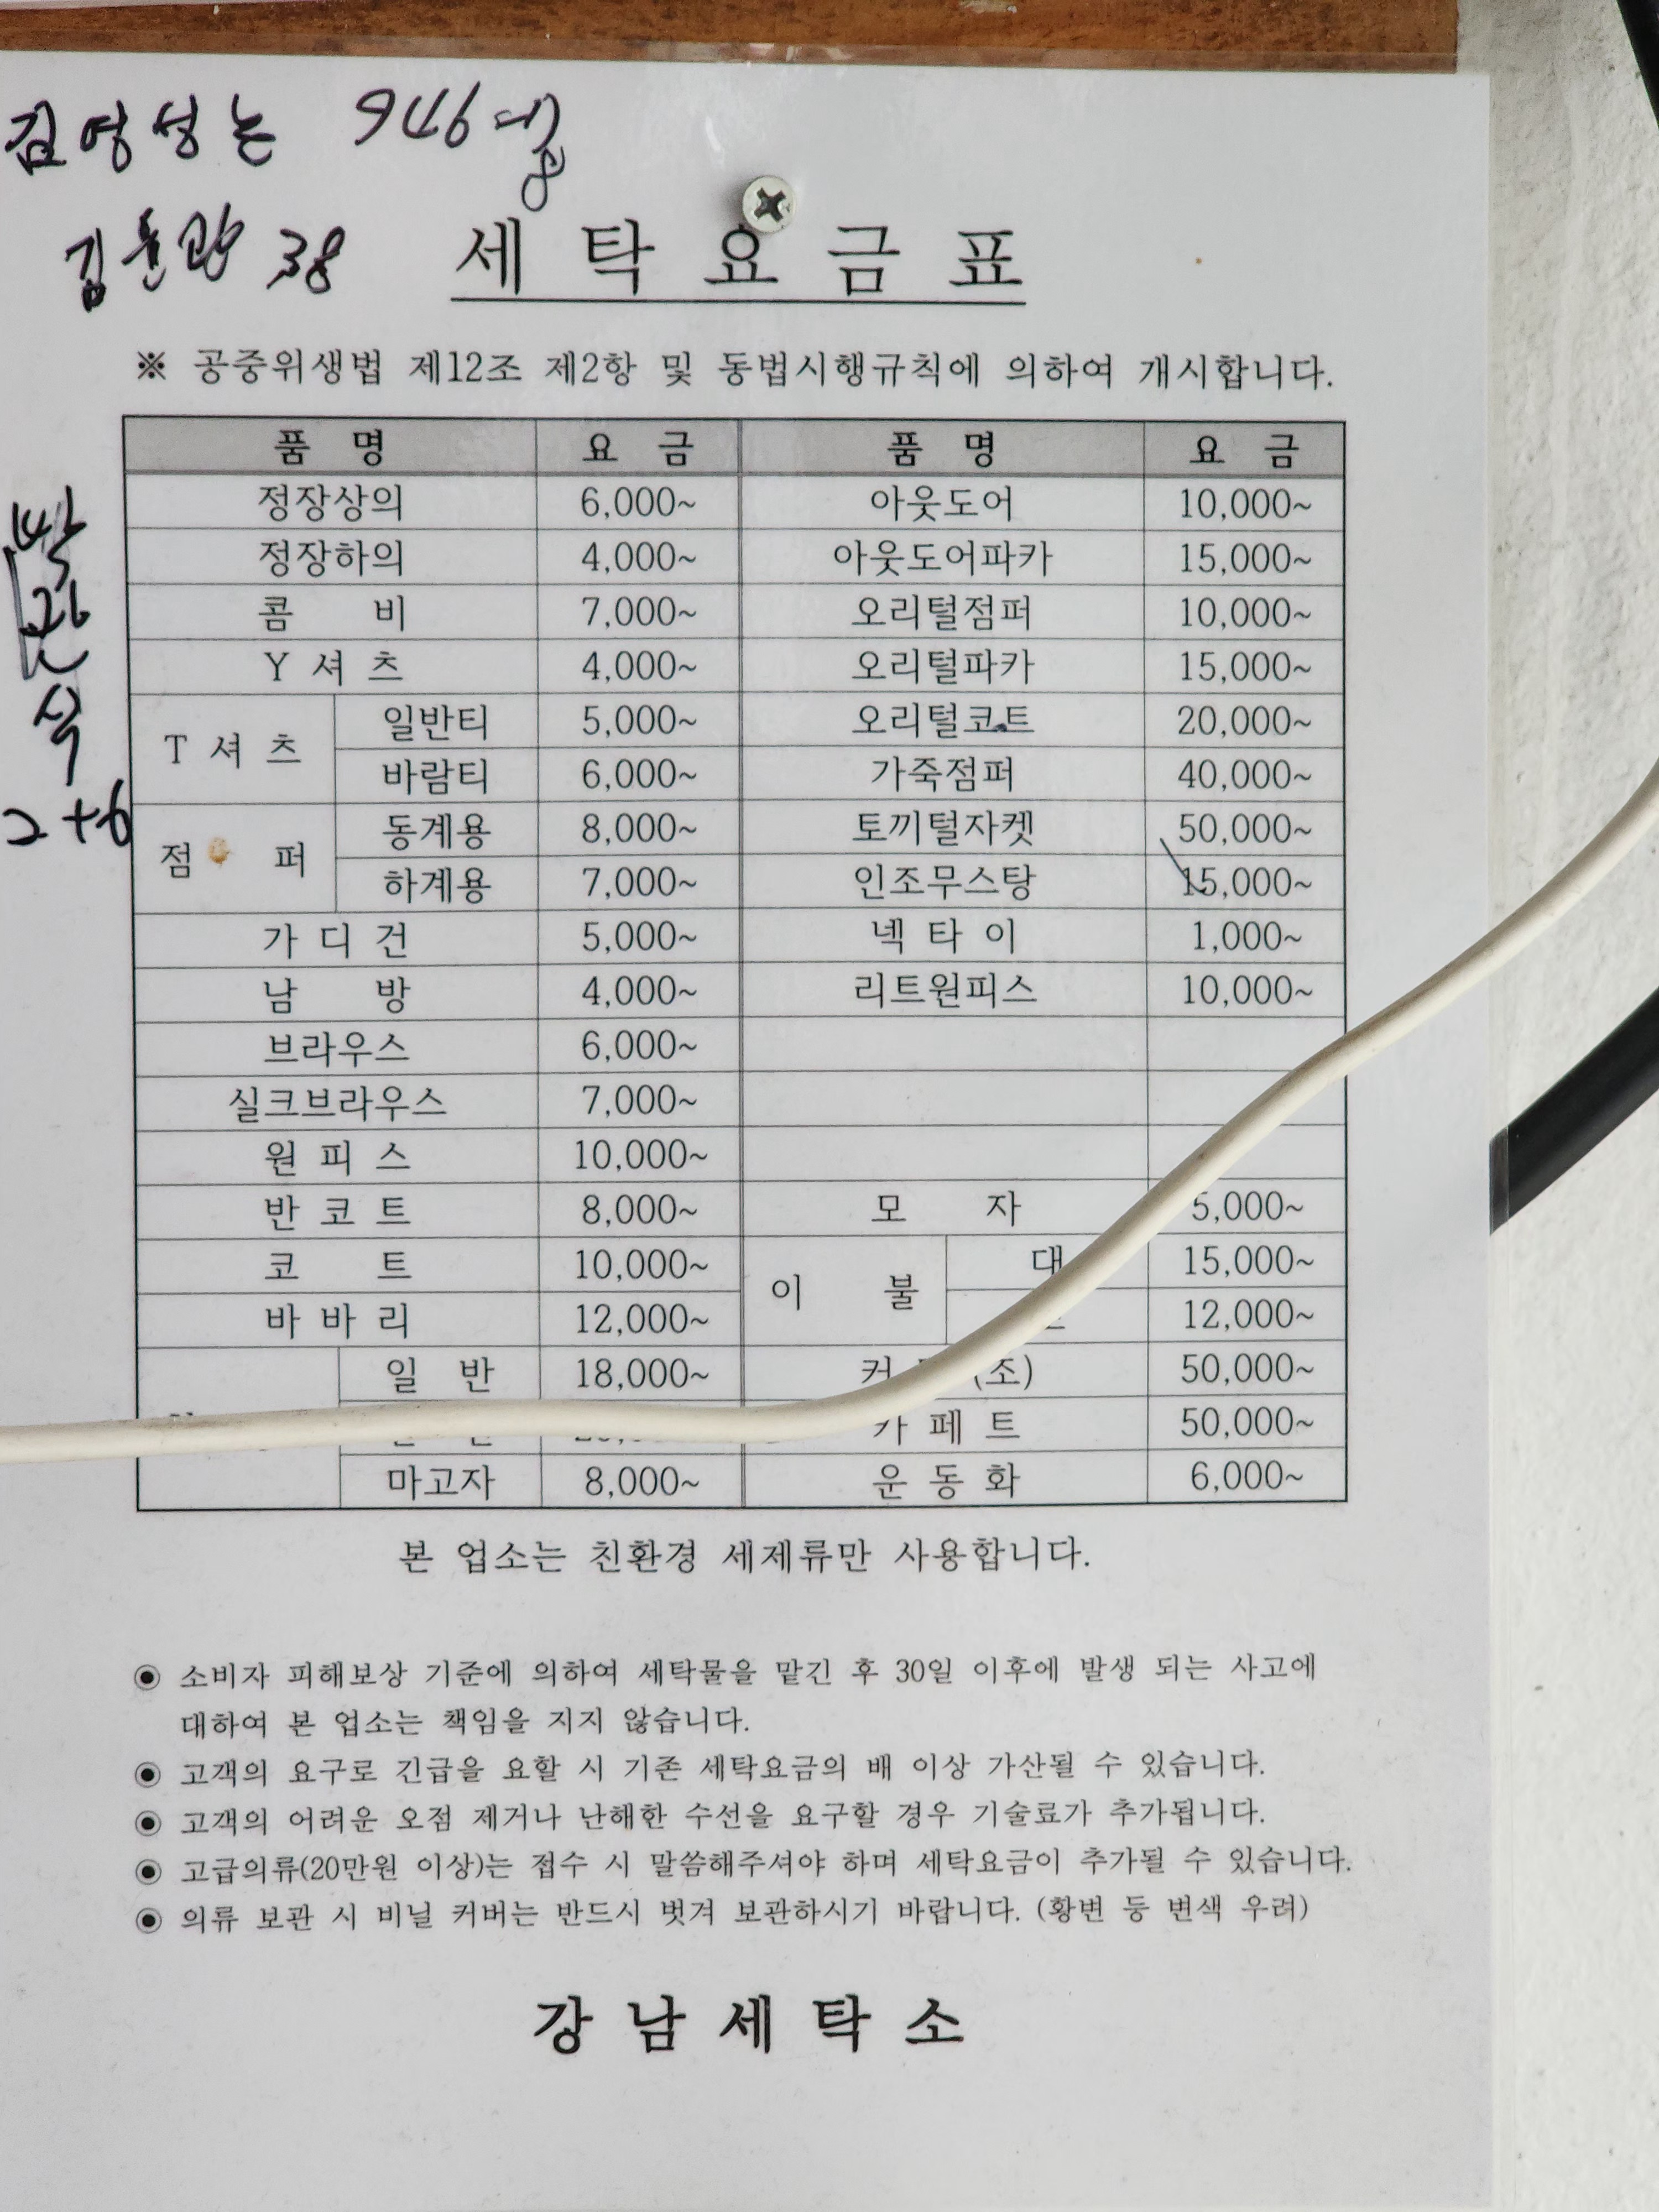 김영성는 946
38
세탁요금표
※ 공중위생법 제12조 제2항 및 동법시행규칙에 의하여 개시합니다.
품 명 요 금 품 명 요 금
정장상의 6,000~ 아웃도어 10,000~
정장하의 4,000~ 아웃도어파카 15,000~
콤 비 7,000~ 오리털점퍼 10,000~
Y 셔 츠 4,000~ 오리털파카 15,000~
T 셔 츠 일반티 5,000~ 오리털코트 20,000~
바람티 6,000~ 가죽점퍼 40,000~
점 퍼 동계용 8,000~ 토끼털자켓 50,000~
하계용 7,000~ 인조무스탕 15,000~
가 디 건 5,000~ 넥 타 이 1,000~
남 방 4,000~ 리트원피스 10,000~
브라우스 6,000~
실크브라우스 7,000~
원 피 스 10,000~
반 코 트 8,000~ 모 자 5,000~
코 트 10,000~ 이 불 대 15,000~
바 바 리 12,000~ 12,000~
일 반 18,000~ (조) 50,000~
카 페 트 50,000~
마고자 8,000~ 운 동 화 6,000~
2+6
본 업소는 친환경 세제류만 사용합니다.
◉ 소비자 피해보상 기준에 의하여 세탁물을 맡긴 후 30일 이후에 발생 되는 사고에
대하여 본 업소는 책임을 지지 않습니다.
◉ 고객의 요구로 긴급을 요할 시 기존 세탁요금의 배 이상 가산될 수 있습니다.
◉ 고객의 어려운 오점 제거나 난해한 수선을 요구할 경우 기술료가 추가됩니다.
◉ 고급의류(20만원 이상)는 접수 시 말씀해주셔야 하며 세탁요금이 추가될 수 있습니다.
◉ 의류 보관 시 비닐 커버는 반드시 벗겨 보관하시기 바랍니다. (황변 등 변색 우려)
강남세탁소